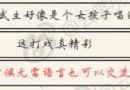 武主好像是个女孩子唱
这打戏真精彩
候无需语言也可以交流